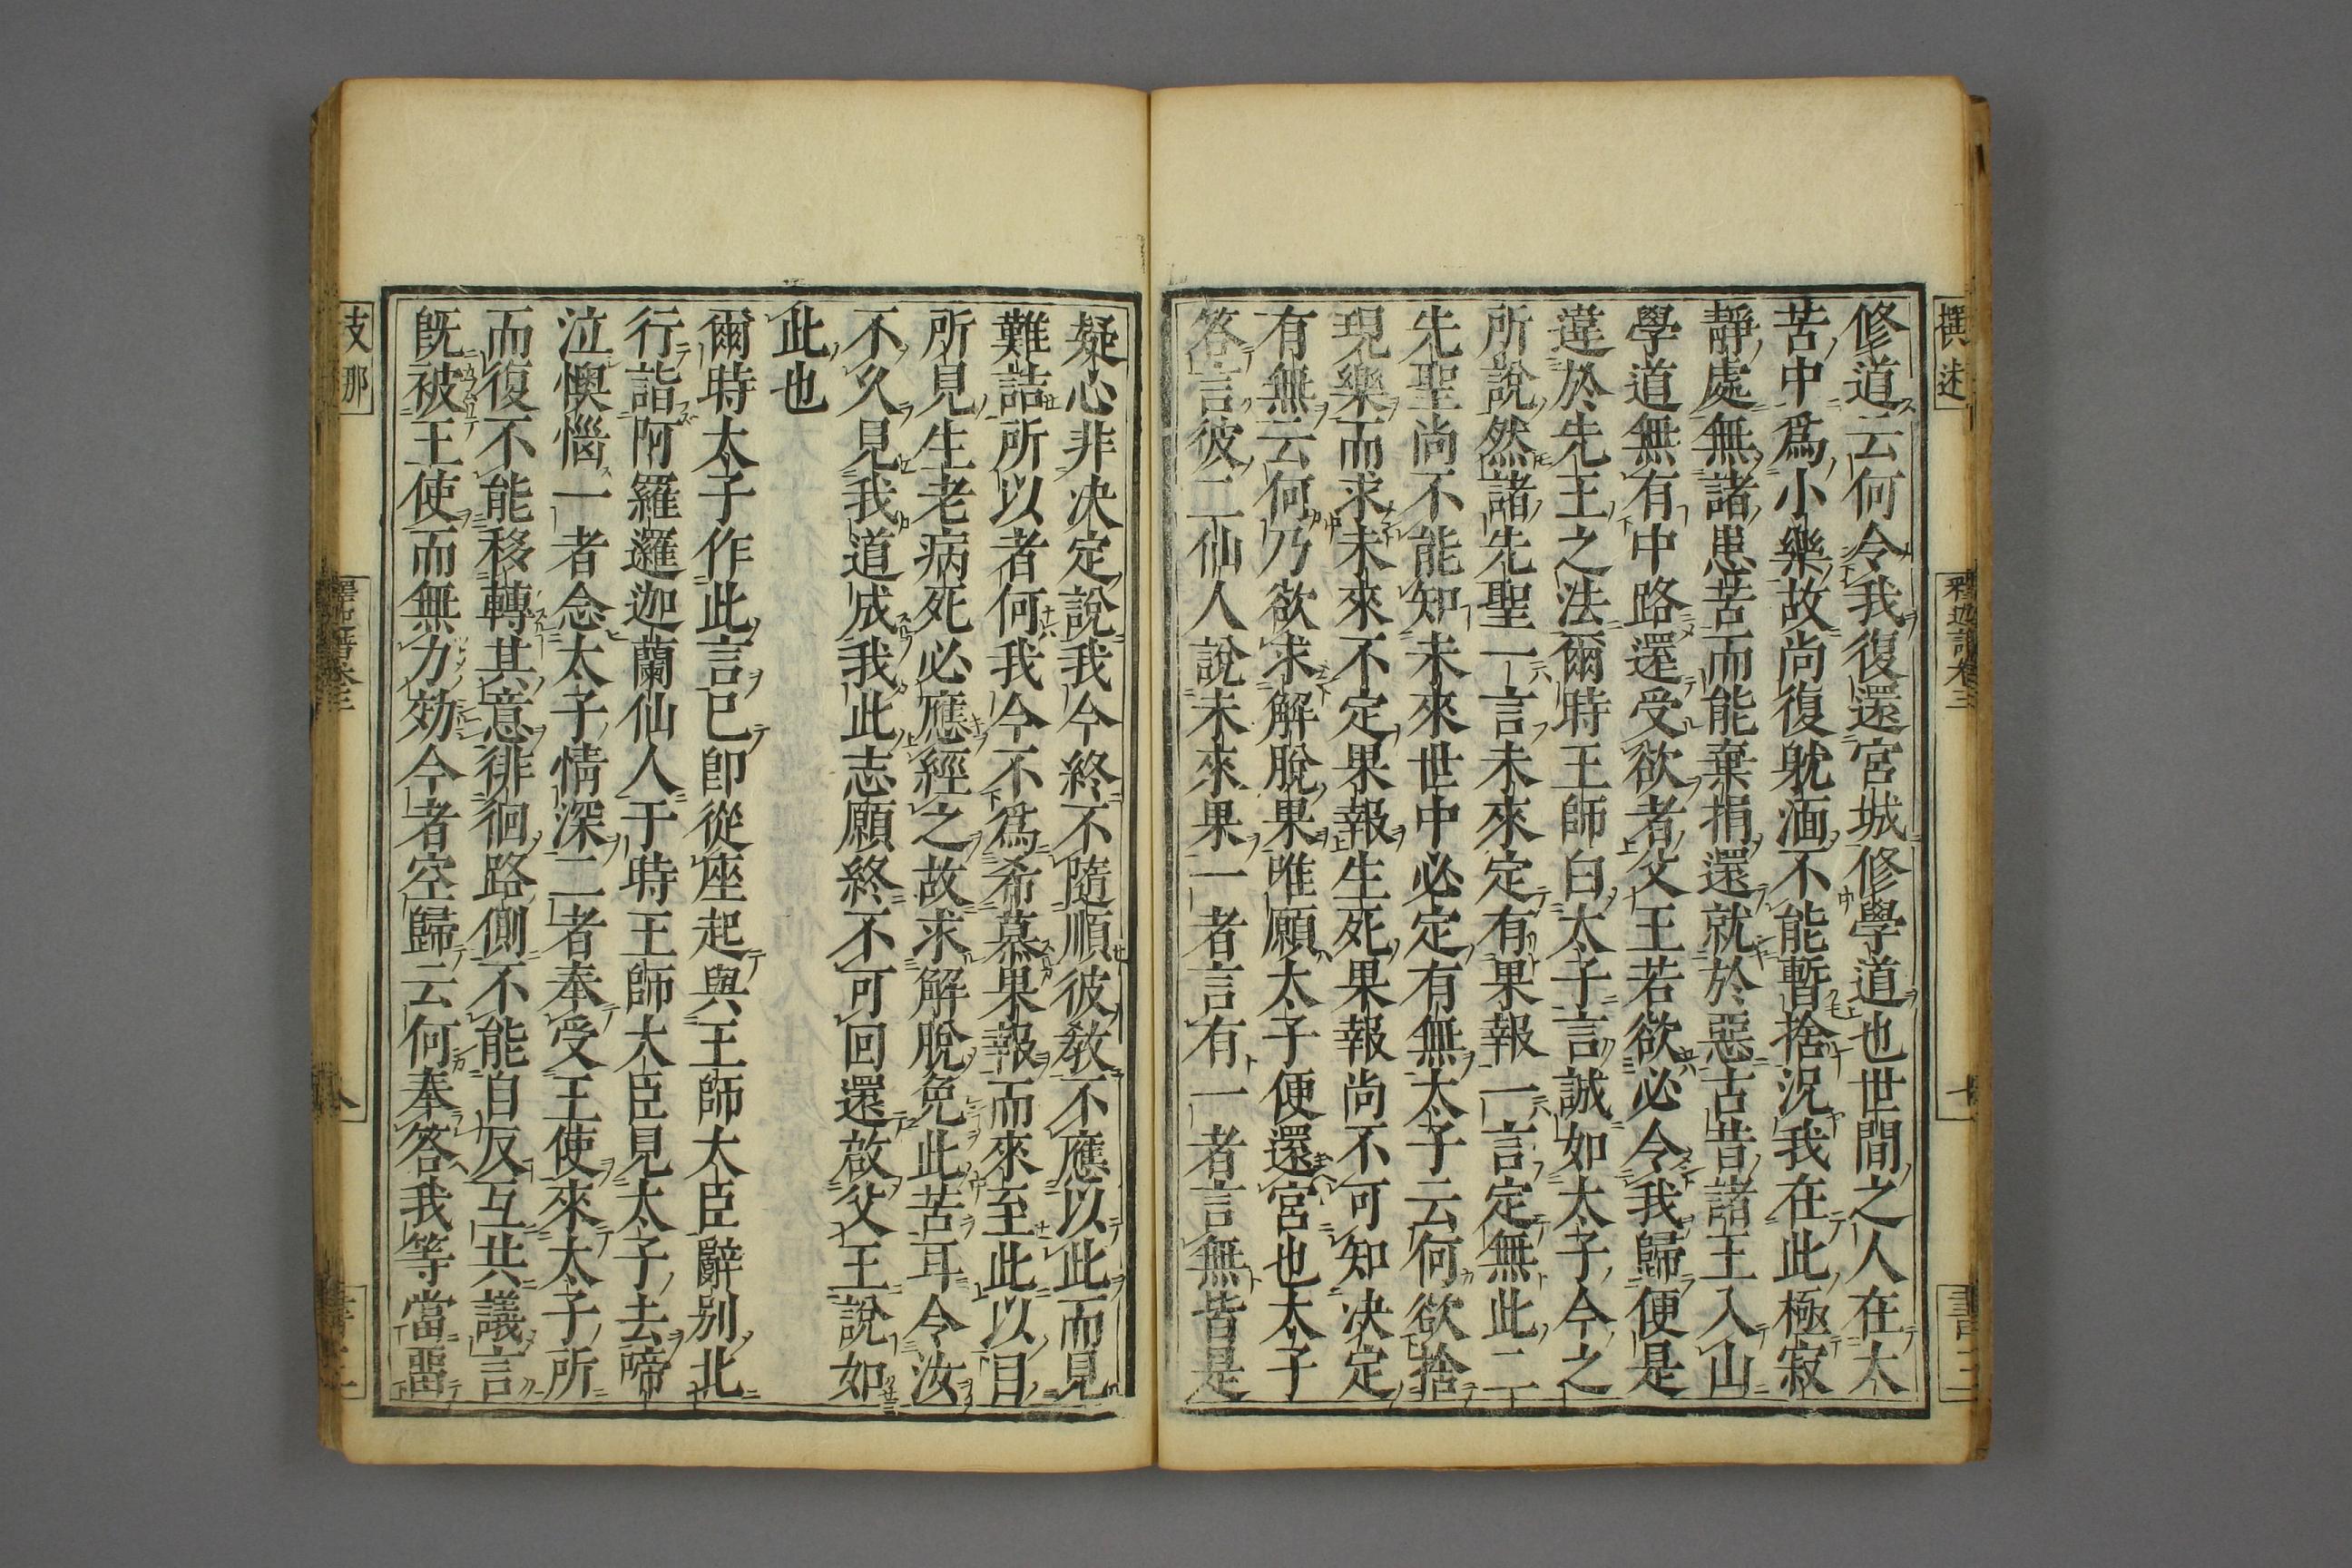 撰述
釋迦譜卷三
十
書三
修道云何令我復還宮城修學道也世間之人在大
苦中爲小樂故尚復躭湎不能暫捨況我在此極寂
靜處無諸患苦而能棄捐還就於惡古昔諸王入山
學道無有中路還受欲者父王若欲必令我歸便是
違於先王之法爾時王師白太子言誠如太子今之
所說然諸先聖一言未來定有果報一言定無此二
先聖尚不能知未來世中必定有無太子云何欲捨
現樂而求未來不定果報生死果報尚不可知決定
有無云何乃欲求解脫果唯願太子便還宮也太子
答言彼二仙人說未來果一者言有一者言無皆是
疑心非決定說我今終不隨順彼敎不應以此而見
難詰所以者何我今不爲希慕果報而來至此以目
所見生老病死必應經之故求解脫免此苦耳令汝
不久見我道成我此志願終不可回還啟父王說如
此也
爾時太子作此言已卽從座起與王師大臣辭別北
行詣阿羅邏迦蘭仙人于時王師大臣見太子去啼
泣懊惱一者念太子情深二者奉受王使來太子所
而復不能移轉其意徘徊路側不能自反互共議言
旣被王使而無力効今者空歸云何奉答我等當畱
支那